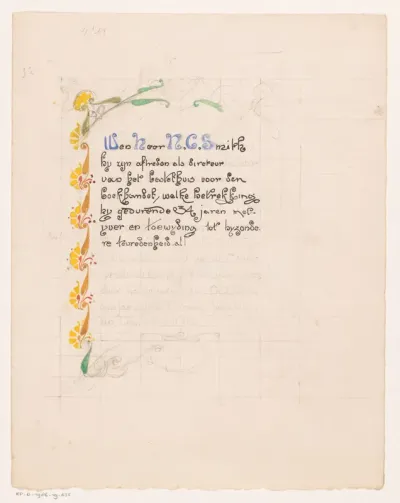 Den Heer N.G. Smith
by zyn aftreden als direteur
van het bestelhuis voor den
boekhandel, welke betrekking
hy gedurende 34 jaren met
yver en toewyding tot byzonde
re tevredenheid al